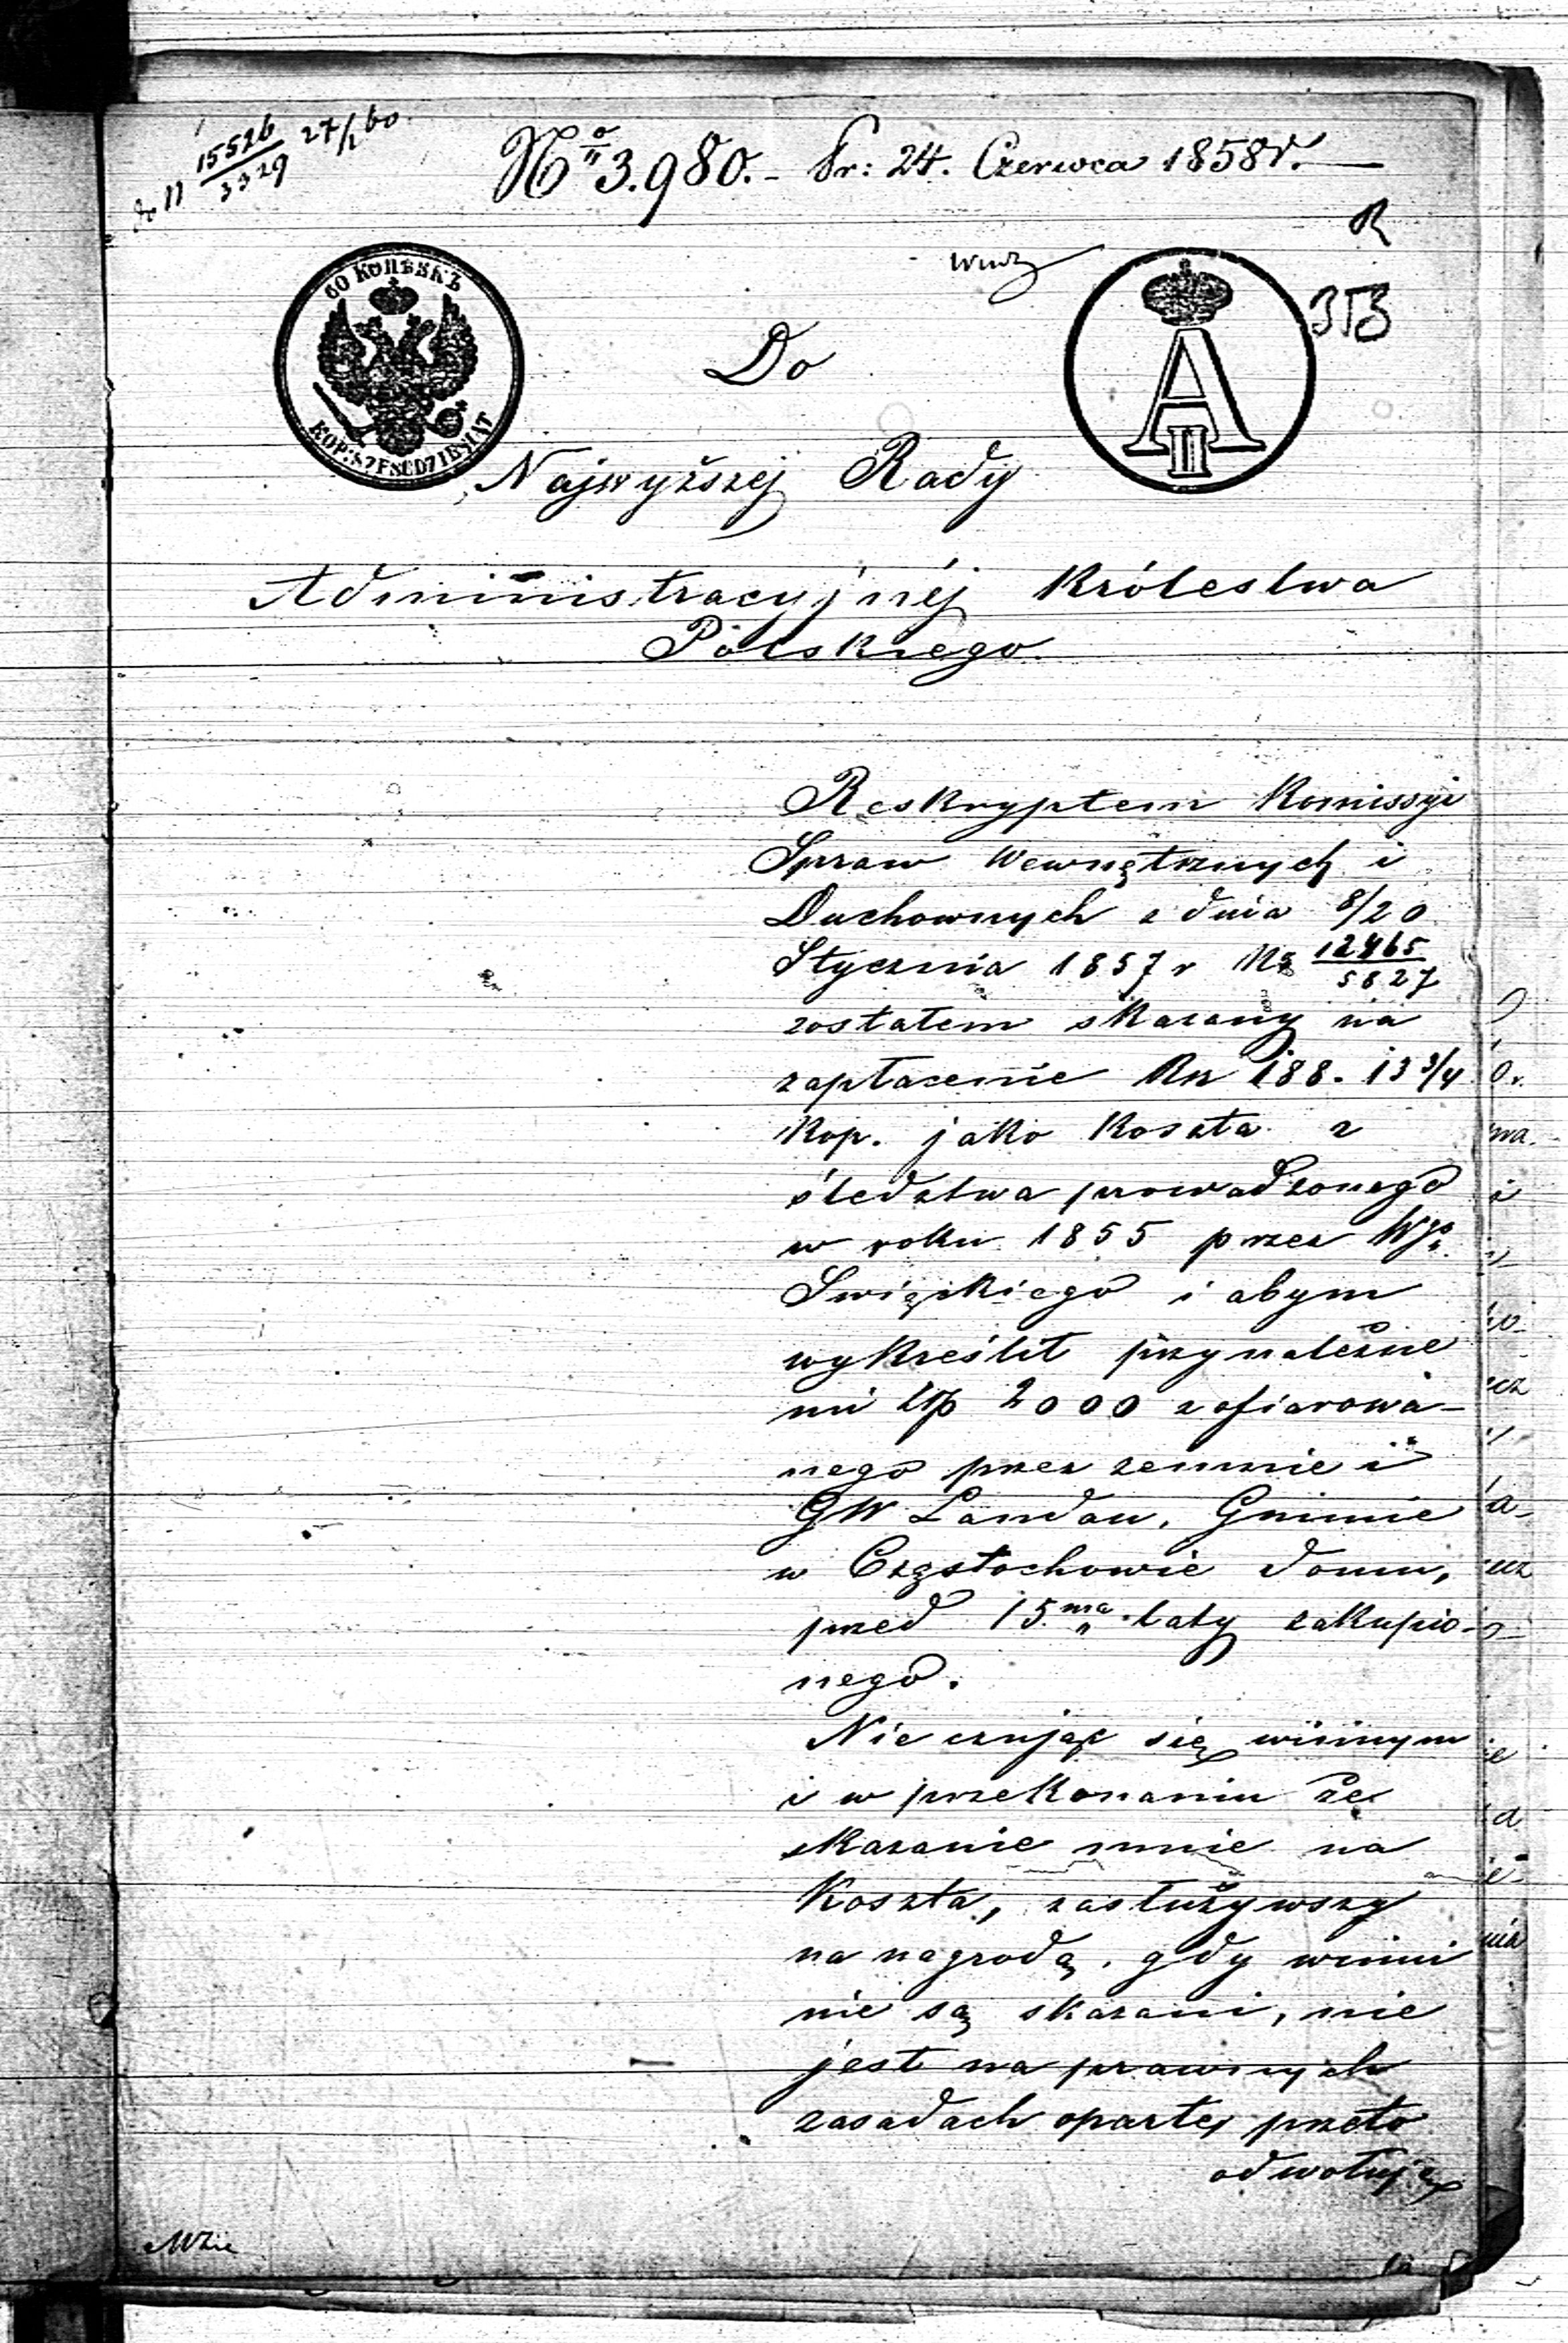 do N 15526/3329 27/2 60
No 3.980. - Pr: 24. Czerwca 1858 r.
R
353
60 КОПѢЕКЪ
KOP: SZEŚĆDZIESIĄT
A II
Do
Najwyższej Rady
Administracyjnéj Królestwa
Polskiego
Reskryptem Komissyi
Spraw Wewnętrznych i
Duchownych z dnia 8/20
Stycznia 1857 r No 12465/5827
zostałem skazany na
zapłacenie Rsr 188. 13 3/4
Kop. jako Koszta z
śledztwa prowadzonego
w roku 1855 przez Wgo
Swięckiego i abym
wykreślił przynależne
mi złp 2000 z ofiarowa-
nego przez zemnie i
GW Landau, Gminie
w Częstochowie domu,
przed 15ma laty zakupio-
nego.
Nie czując się winnym
i w przekonaniu że
skazanie mnie na
Koszta, zasłużywszy
na nagrodę, gdy winni
nie są skazani, nie
jest na prawnych
zasadach oparte, przeto
odwołuję